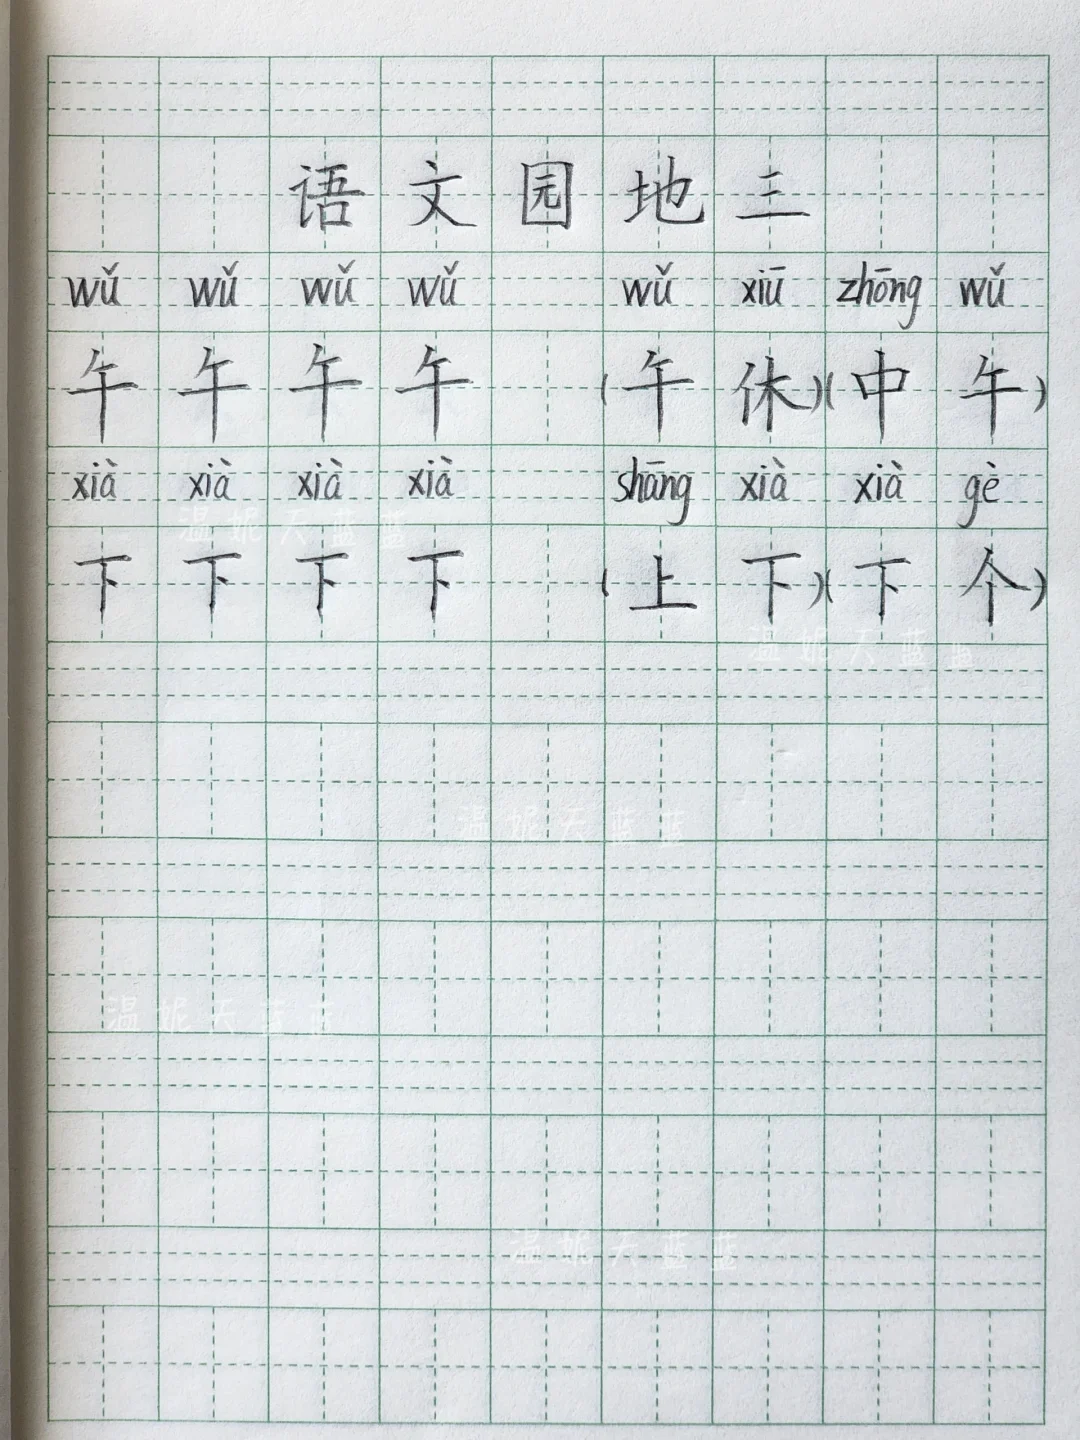 语文园地三
wǔ wǔ wǔ wǔ wǔ xiū zhōng wǔ
午 午 午 午 (午休)(中午)
xià xià xià xià shāng xià xià gè
下 下 下 下 (上下)(下个)
温妮天蓝蓝
温妮天蓝蓝
温妮天蓝蓝
温妮天蓝蓝
温妮天蓝蓝